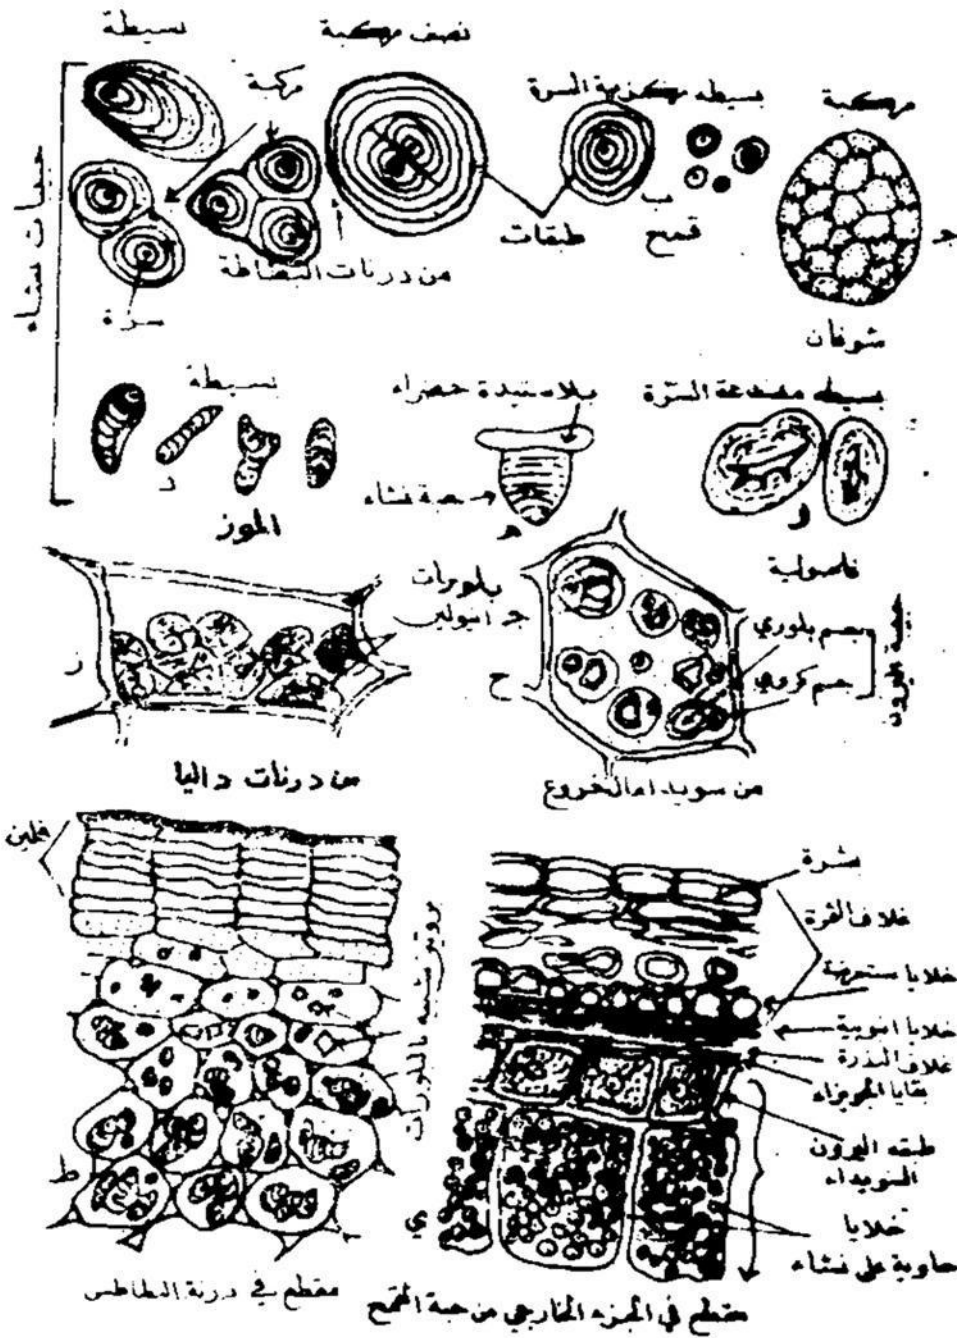 بسيطة
نصف مركبة
مركبة
بسيطه مركزية السرة
مركبة
حبيبات نشاء
ب
قمح
طبقات
جـ
من درنات البطاطة
سرة
شوفان
بسيطة
بلاستيدة خضراء
بسيطه متصدعة السرة
د
حبة نشاء
الموز
هـ
و
فاصولية
بلورات
جـ انيولين
جسم بلوري
جسم كروي
ز
ح
من درنات داليا
من سويداء الخروع
فلين
بشرة
غلاف الثمرة
خلايا مستعرضة
خلايا انبوبية
غلاف البذرة
بقايا الجويزاء
طبقه اليرون
السويداء
خلايا
حاوية على نشاء
ط
ي
مقطع في درنة البطاطس
مقطع في الجزء الخارجي من حبة القمح